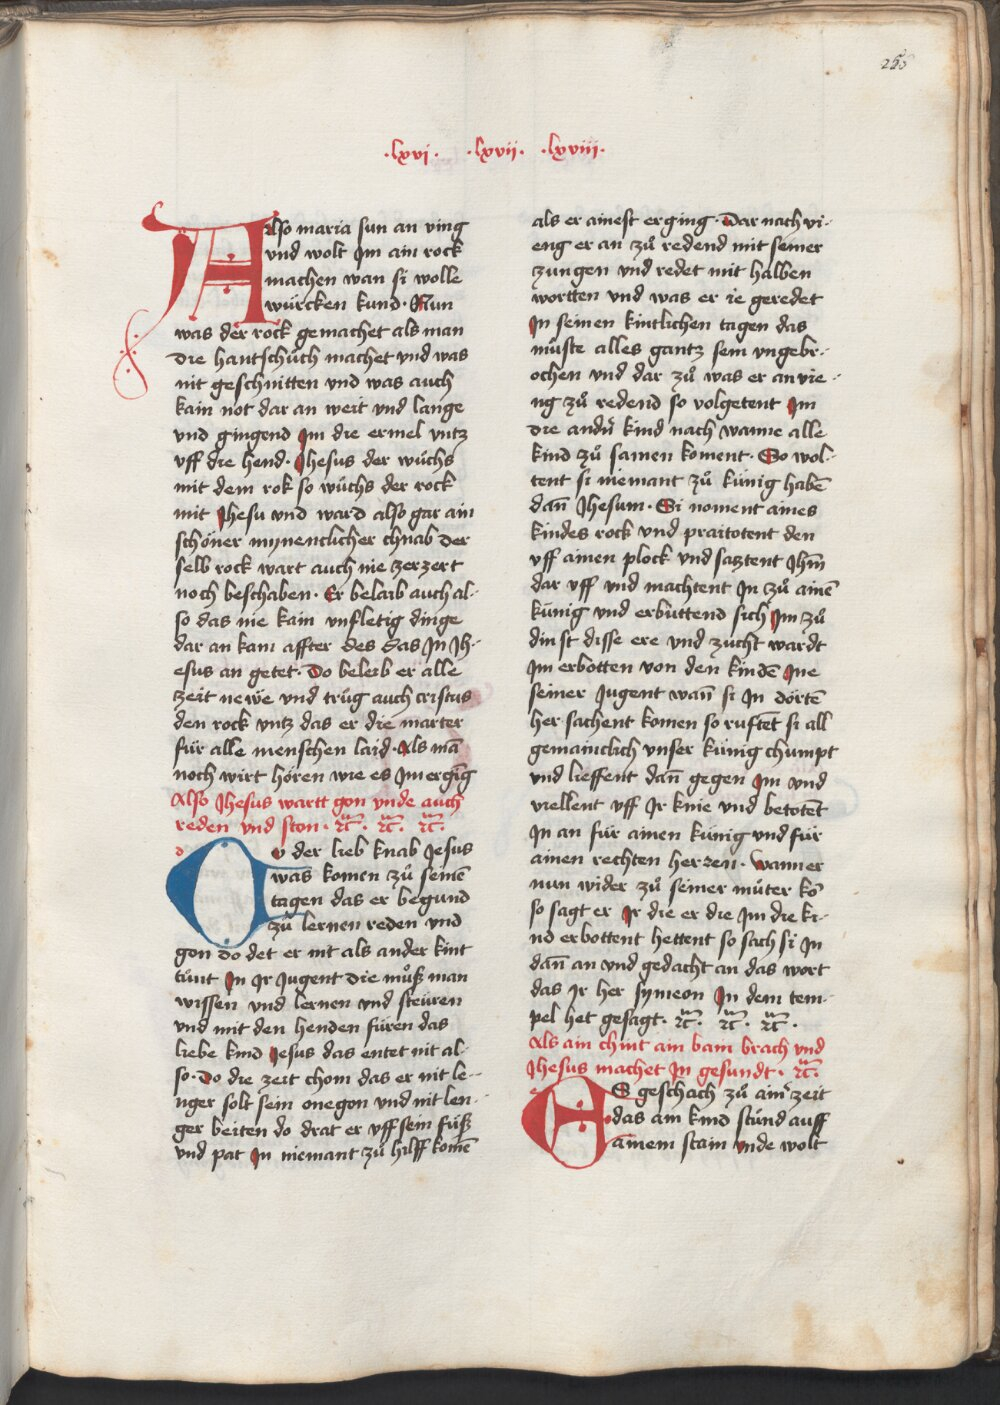 ·lxvi· ·lxvii· ·lxviii·
Also maria sun an ving
vnd wolt Im ain rock
machen wan si wolle
würcken kund· Nun
was der rock gemachet als man
die hantschuͦch machet vnd was
nit geschnitten vnd was auch
kain not dar an weit vnd lange
vnd gingend Im die ermel vntz
vff die hend· Jhesus der wuͦchs
mit dem rok so wuͦchs der rock
mit Jhesu vnd ward also gar ain
schöner mynenclicher chnab der
selb rock wart auch nie zerzert
noch beschaben· Er belaib auch al-
so das nie kain vnfletig dinge
dar an kam affter des das In Jh-
esus an getet· Do beleib er alle
zeit newe vnd truͦg auch cristus
den rock vntz das er die marter
für alle menschen laid· Als mā
noch wirt hören wie es Im ergīg
Also Jhesus wartt gon vnde auch
reden vnd ston· ꝛc̄· ꝛc̄· ꝛc̄·
Do der lieb knab Jesus
was komen zuͦ seinē
tagen das er begund
zuͦ lernen reden vnd
gon do det er nit als ander kint
tuͦnt In Ir Jugent die muͦß man
wissen vnd lernen vnd steüren
vnd mit den henden füren das
liebe kind Jesus das entet nit al-
so· Do die zeit chom das er nit le-
nger solt sein onegon vnd nit len-
ger beiten do drat er vff sein füß
vnd pat In niemant zuͦ hilff komē
250
als er ainest erging· Dar nach vi-
eng er an zuͦ redend mit seiner
zungen vnd redet mit halben
wortten vnd was er ie geredet
In seinen kintlichen tagen das
muͦste alles gantz sein vngebr-
ochen vnd dar zuͦ was er an vie-
ng zuͦ redend so volgetent Im
die andn̄ kind nach wanne alle
kind zuͦ samen koment· So wol-
tent si niemant zuͦ künig habē
dan̄ Jhesum· Si noment aines
kindes rock vnd praitotent den
vff ainen plock vnd saztent Jhm̄
dar vff vnd machtent In zuͦ ainē
künig vnd erbuttend sich Im zuͦ
dinst disse ere vnd zucht wardt
Im erbotten von den kindē Ine
seiner Jugent wan̄ si In dortē
her sachent komen so ruftēt si all
gemainclich vnser künig chumpt
vnd lieffent dan̄ gegen Im vnd
viellent vff Ir knie vnd betotēt
In an für ainen künig vnd für
ainen rechten herren· Wann er
nun wider zuͦ seiner muͦter kō
so sagt er Ir die er die Im die ki-
nd erbottent hettent so sach si In
dan̄ an vnd gedacht an das wort
das Ir her symeon In dem tem-
pel het gesagt· ꝛc̄· ꝛc̄· ꝛc̄·
Als ain chint ain bain brach vnd
Jhesus machet In gesundt· ꝛc̄·
ES geschach zuͦ ainr̄ zeit
das ain kind stuͦnd auff
ainem stain vnde wolt